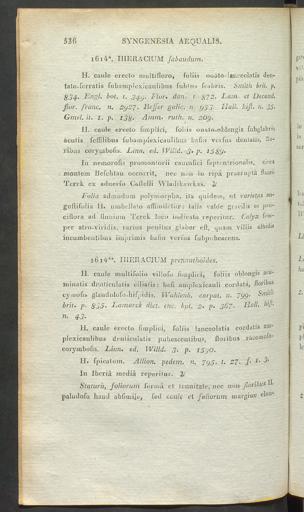 536 SYNGENESIA AEQUALIS.
1614*. HIERACIUM sabaudum.
H. caule erecto multifloro, foliis ouato-lanceolatis den-
tato-serratis subamplexicaulibus subtus scabris. Smith brit. p.
834. Engl. bot. t. 349. Flor. dan. t. 872. Lam. et Decand.
flor. franc. n. 2927. Besser galic. n. 953. Hall. hist. n. 35.
Gmel. it. 1. p. 138. Amm. ruth. n. 209.
H. caule erecto simplici, foliis ouato-oblongis subglabris
acutis sessilibus subamplexicaulibus basin versus dentatis, flo-
ribus corymbosis. Linn. ed. Willd. 3. p. 1589.
In nemorosis promontorii caucasici septentrionalis, circa
montem Beschtau occurrit, nec non in ripa praerupta flum.
Terek ex aduerso Castelli Wladikawkas. ♃
Folia admodum polymorpha, ita quidem, ut varietas an-
gustifolia H. umbellato affinis
ciflora ad flumium Terek loco indicato reperitur. Calyx sem-
per atro-viridis, rarius penitus glaber est, quam villis albidis
incumbentibus imprimis basin versus subpubescens.
1614**. HIERACIUM prenanthoides.
H. caule multifolio villoso simplici, foliis oblongis acu-
minatis denticulatis ciliatis: basi amplexicauli cordata, floribus
cymosis glanduloso-hispidis. Wahlenb. carpat. n. 799. Smith
brit. p. 835. Lamarck dict. enc. bot. 2. p. 367. Hall. hist.
n. 43.
H. caule erecto simplici, foliis lanceolatis cordatis am-
plexicaulibus denticulatis pubescentibus, floribus racemoso-
corymbosis. Linn. ed. Willd. 3. p. 1590.
H. spicatum. Allion. pedem. n. 795. t. 27. f. 1. 3.
In Iberia media reperitur. ♃
Statura, foliorum forma et tenuitate, nec non floribus H.
paludoso haud absimile, sed caule et foliorum margine